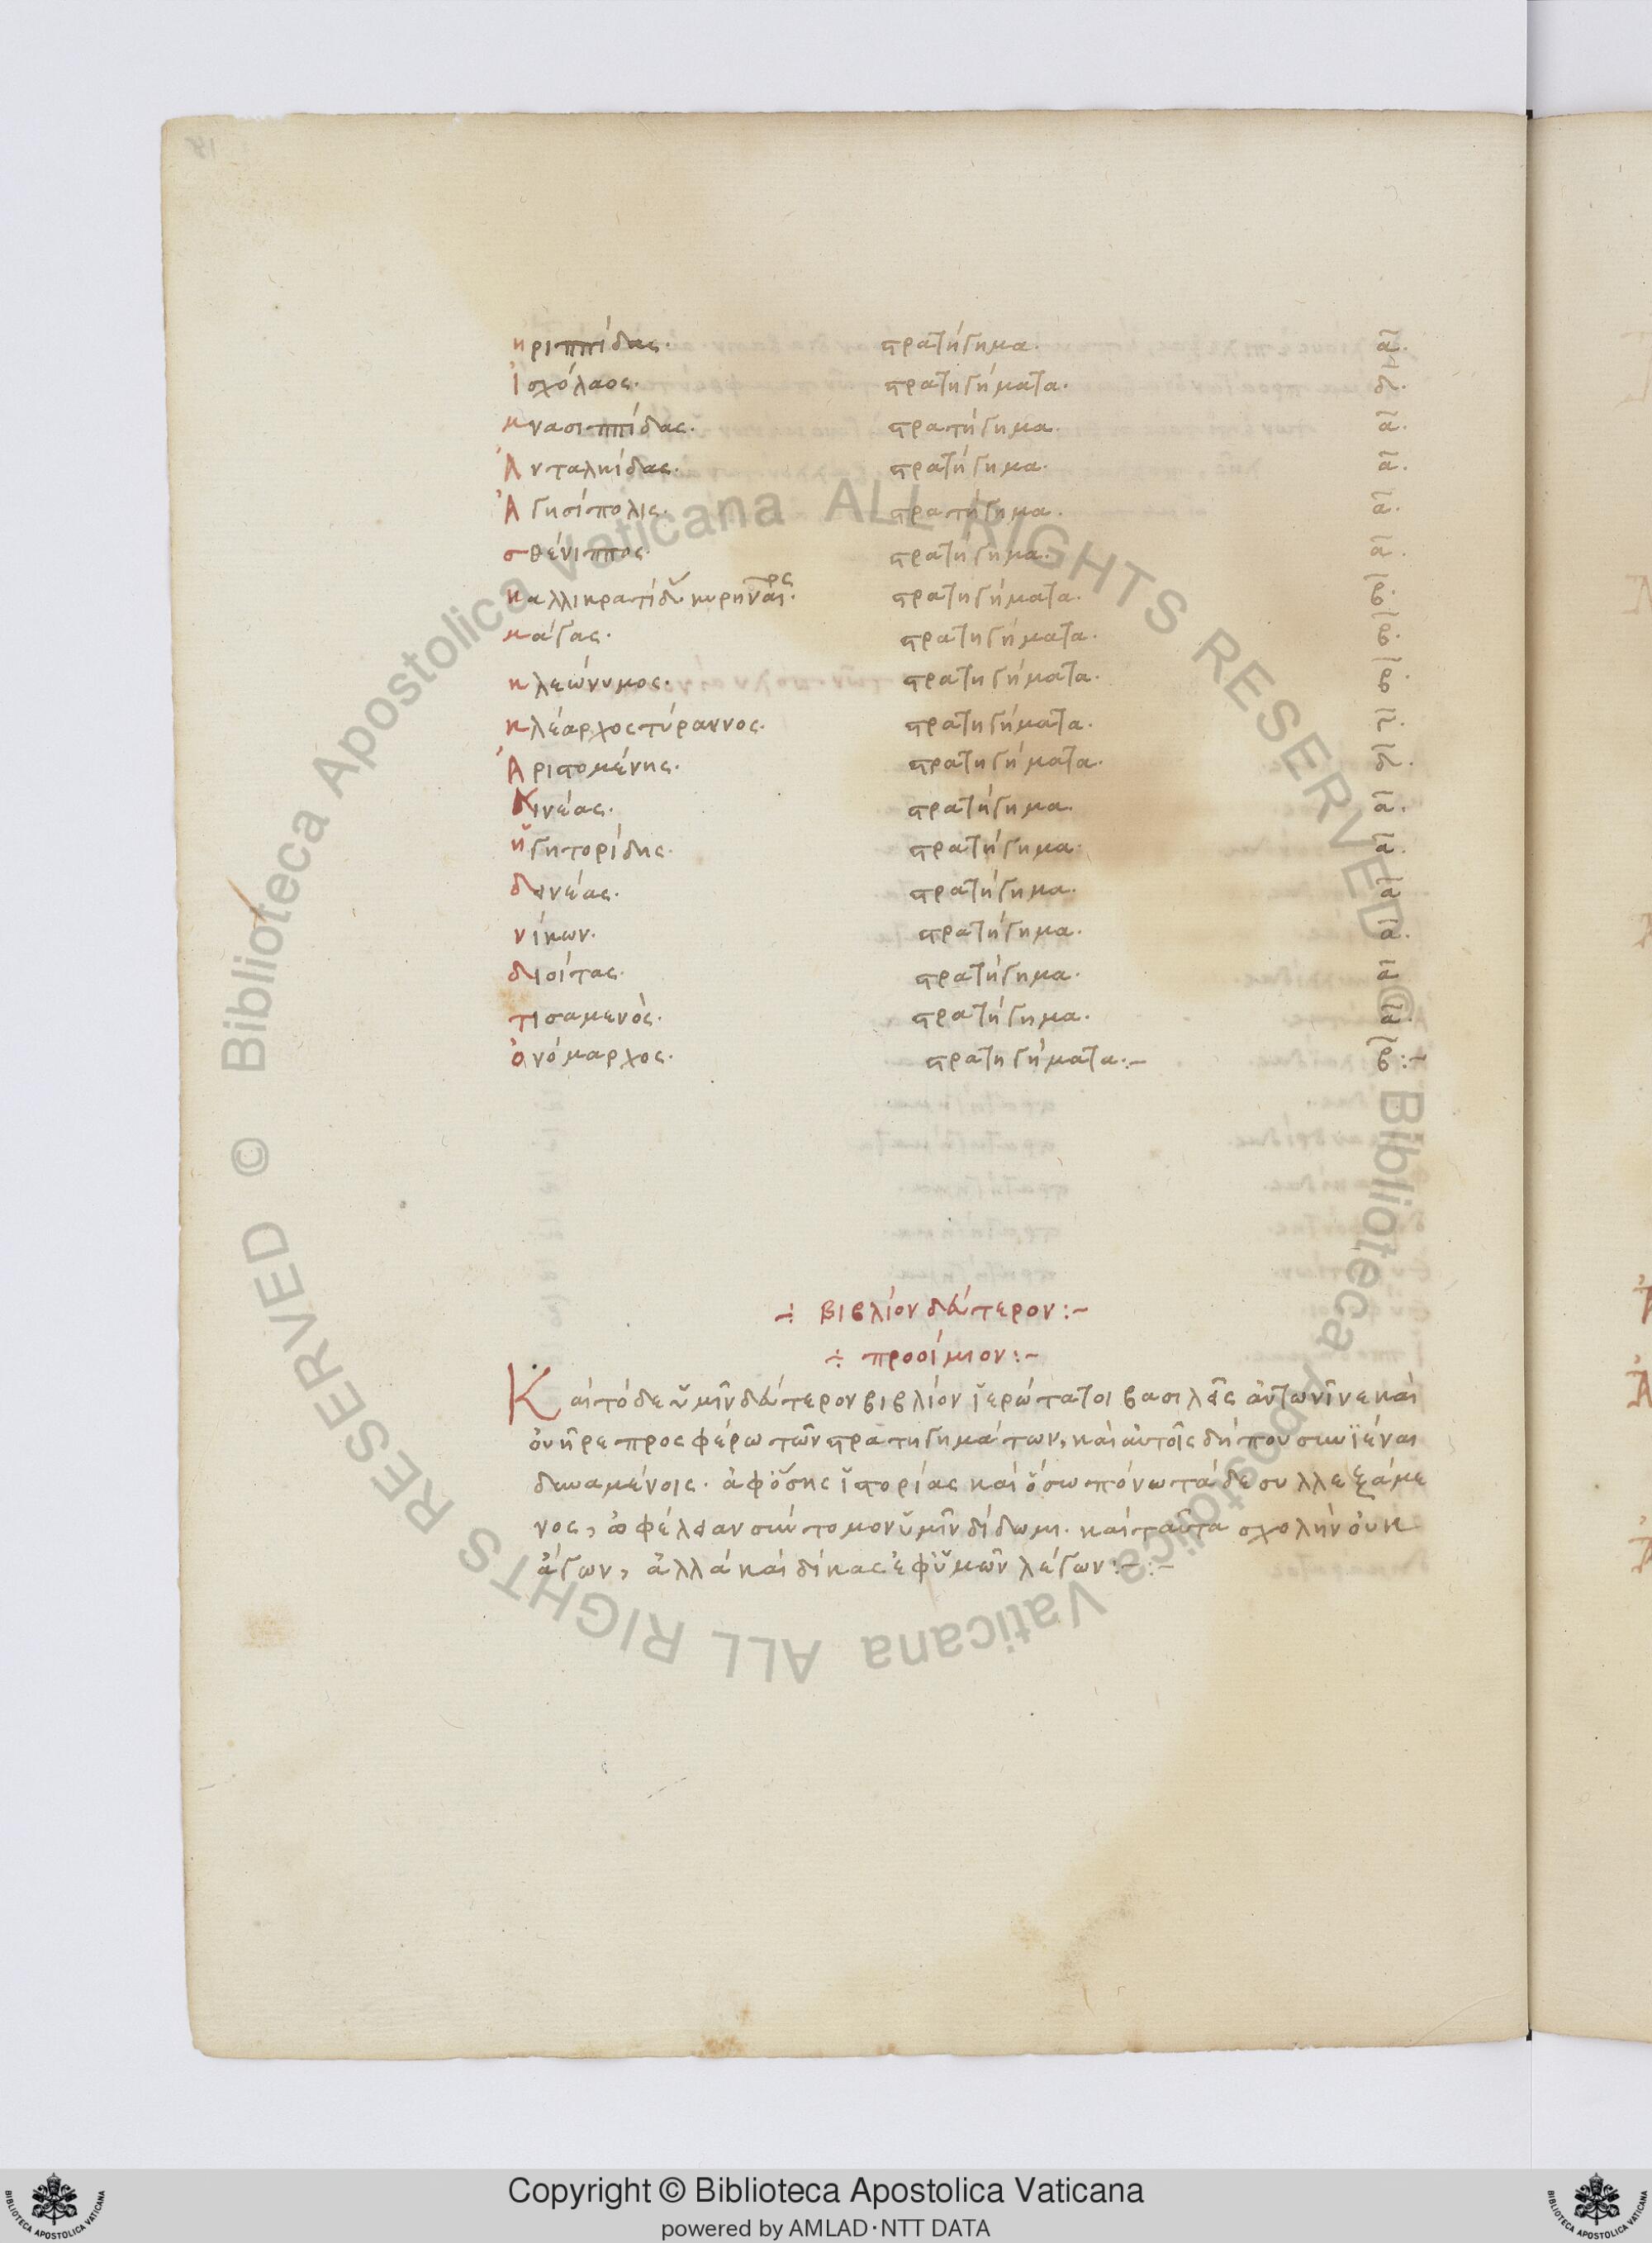 ηριππίδας· στρατήγημα· α·
Ἰσχόλαος· στρατηγήματα· δ·
μνασιππίδας· στρατήγημα· α·
Ἀνταλκίδας· στρατήγημα· α·
Ἀγησίπολις· στρατήγημα· α·
σθένιππος· στρατήγημα· α·
καλλικρατίδου κυρηναῖος· στρατηγήματα· β·
μάγας· στρατηγήματα· β·
κλεώνυμος· στρατηγήματα· β·
κλέαρχος τύραννος· στρατηγήματα· γ·
Ἀριστομένης· στρατηγήματα· δ·
Κινέας· στρατήγημα· α·
ἡγητορίδης· στρατήγημα· α·
δινέας· στρατήγημα· α
νίκων· στρατήγημα· α·
διοίτας· στρατήγημα· α
τισαμενὸς· στρατήγημα· α·
ὀνόμαρχος· στρατηγήματα·:– β:–
÷ βιβλίον δεύτερον:–
÷ προοίμιον:–
Καὶ τόδε ὑμῖν δεύτερον βιβλίον ἱερώτατοι βασιλεῖς ἀντωνῖνε καὶ
ὀυῆρε προσφέρω τῶν στρατηγημάτων, καὶ ἀυτοῖς δήπου συνϊέναι
δυναμένοις· ἀφ ὅσης ἱστορίας καὶ ὅσω πόνω τάδε συλλεξάμε
νος, ὠφέλειαν σύντομον ὑμῖν δίδωμι· καὶ ταῦτα σχολὴν ὀυκ
ἄγων, ἀλλὰ καὶ δίκας ἐφ ὑμῶν λέγων:–:–
© Biblioteca Apostolica Vaticana ALL RIGHTS RESERVED
© Biblioteca Apostolica Vaticana ALL RIGHTS RESERVED
Copyright © Biblioteca Apostolica Vaticana
powered by AMLAD·NTT DATA
BIBLIOTECA APOSTOLICA VATICANA
BIBLIOTECA APOSTOLICA VATICANA